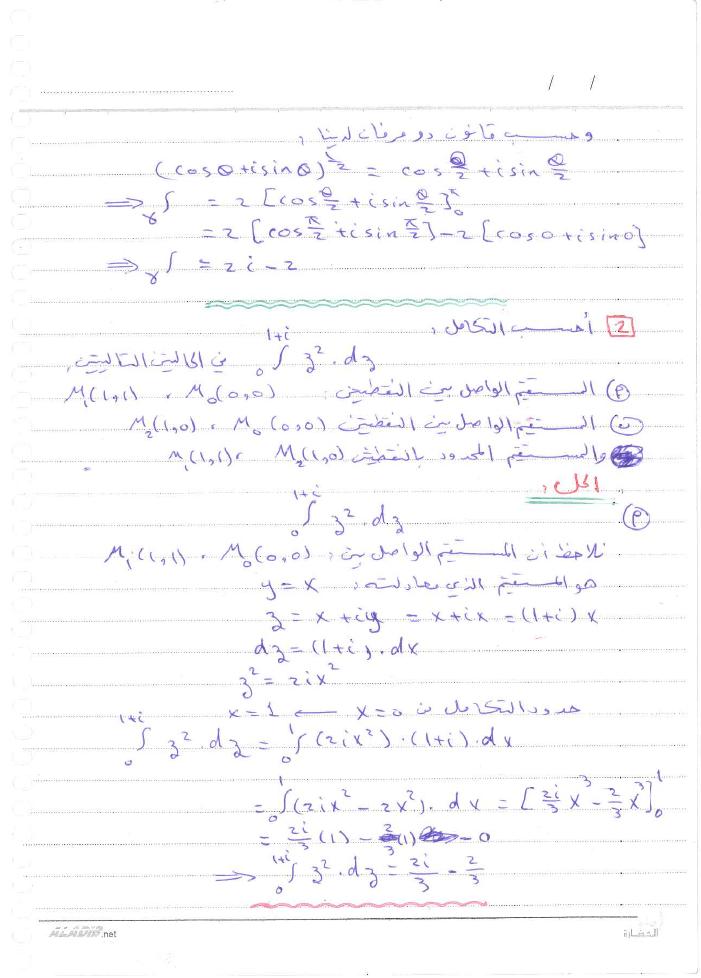 / /
وحسب قانون دو مرفان لدينا:
(cosθ+isinθ)^½ = cos θ/2 + isin θ/2
⟹ γ∫ = 2 [cos θ/2 + isin θ/2]₀^π
= 2 [cos π/2 + isin π/2] - 2 [cos0+isin0]
⟹ γ∫ = 2i - 2
2 أحسب التكامل:
₀∫^(1+i) z².dz في الحالتين التاليتين:
(أ) المستقيم الواصل بين النقطتين: M₀(0,0) ، M₁(1,1)
(ب) المستقيم الواصل بين النقطتين M₀(0,0) ، M₂(1,0)
والمستقيم المحدود بالنقطتين M₂(1,0) ، M₁(1,1)
الحل:
(أ) ₀∫^(1+i) z².dz
نلاحظ أن المستقيم الواصل بين: M₀(0,0) ، M₁(1,1)
هو المستقيم الذي معادلته: y=x
z = x+iy = x+ix = (1+i)x
dz = (1+i).dx
z² = 2ix²
حدود التكامل من x=0 ← x=1
₀∫^(1+i) z².dz = ₀∫¹ (2ix²).(1+i).dx
= ₀∫¹ (2ix² - 2x²).dx = [2i/3 x³ - 2/3 x³]₀¹
= 2i/3 (1) - 2/3 (1) - 0
⟹ ₀∫^(1+i) z².dz = 2i/3 - 2/3
ALADIB.net
الحضارة